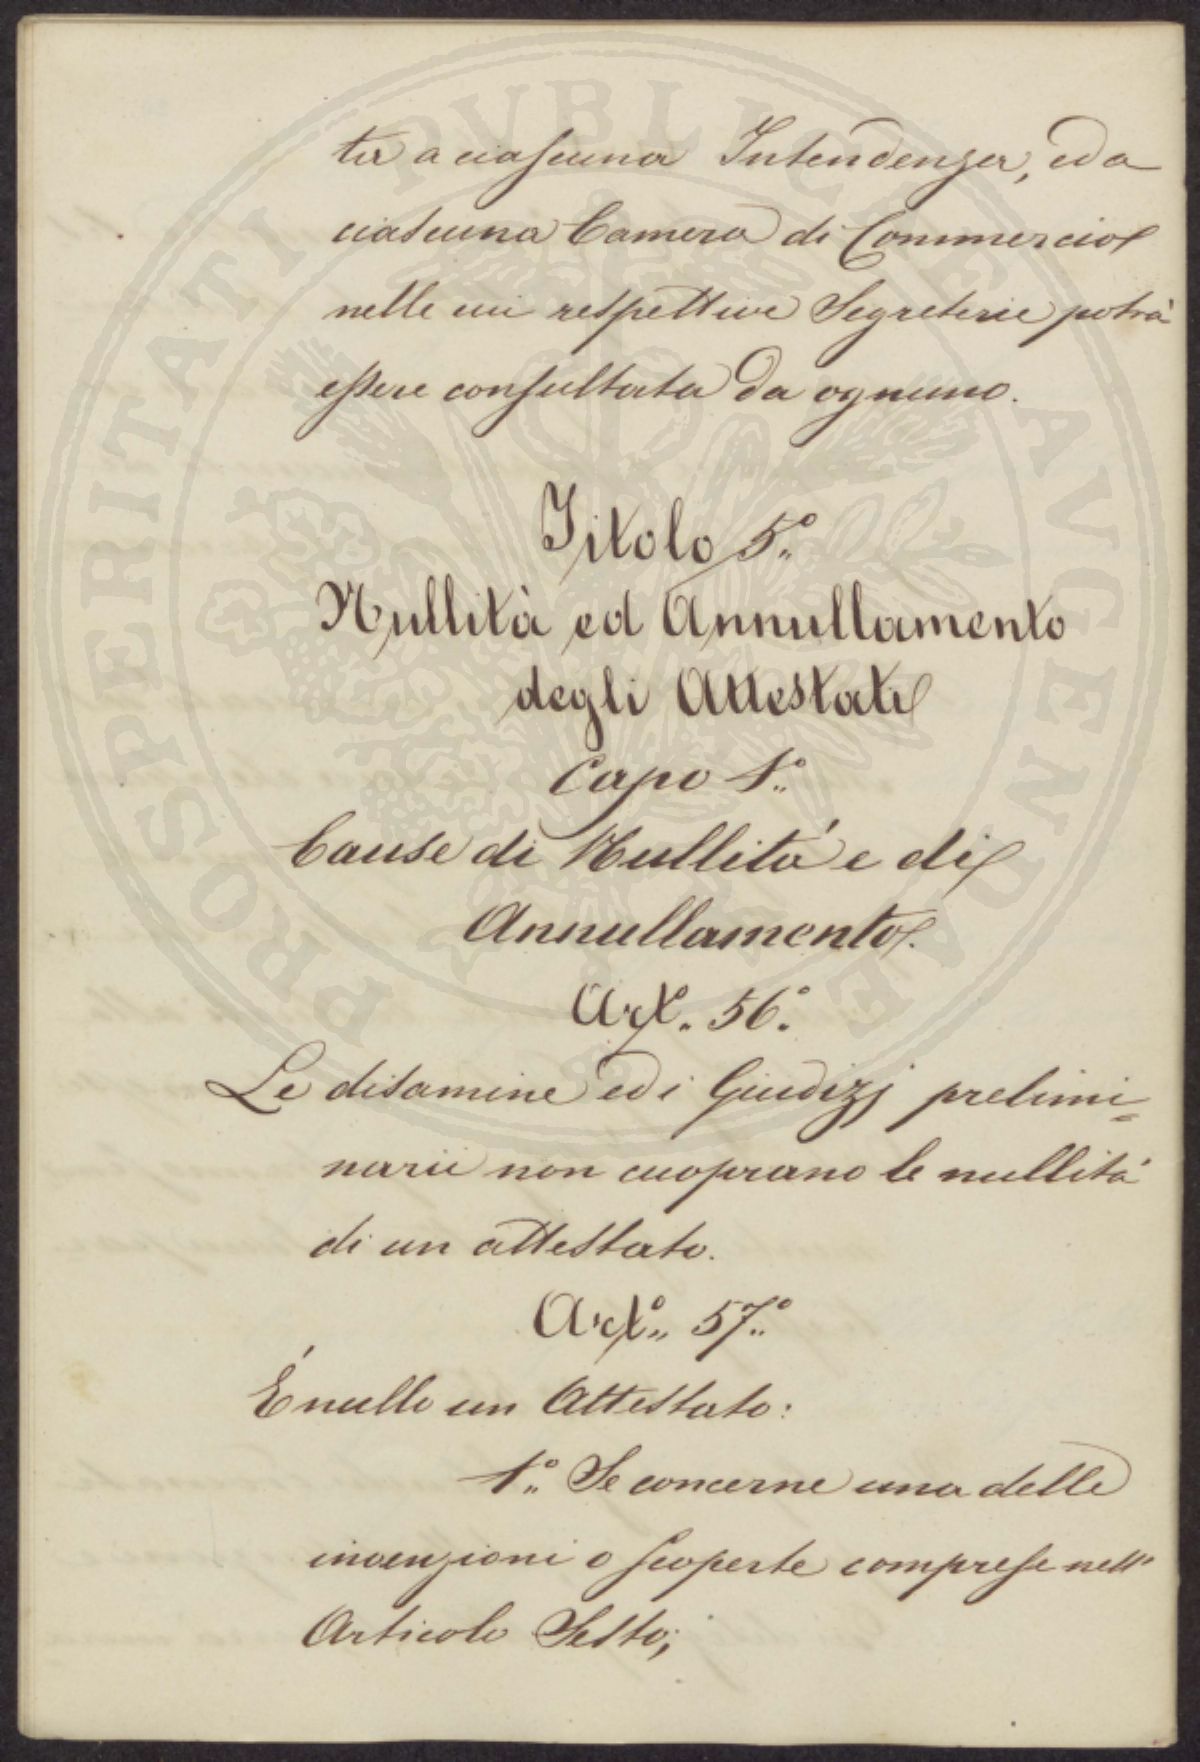 PROSPERITATI PVBLICAE AVGENDAE
ta a ciascuna Intendenza, ed a
ciascuna Camera di Commercio
nelle cui respettive Segreterie potrà
essere consultata da ognuno.
Titolo 5.°
Nullità ed Annullamento
degli Attestati
Capo 1.°
Cause di Nullità e di
Annullamento.
Art.° 56.°
Le disamine ed i Giudizj prelimi=
narii non cuoprano le nullità
di un attestato.
Art.° 57.°
É nullo un Attestato:
1.° Se concerne una delle
invenzioni o scoperte comprese nell'
Articolo Sesto;